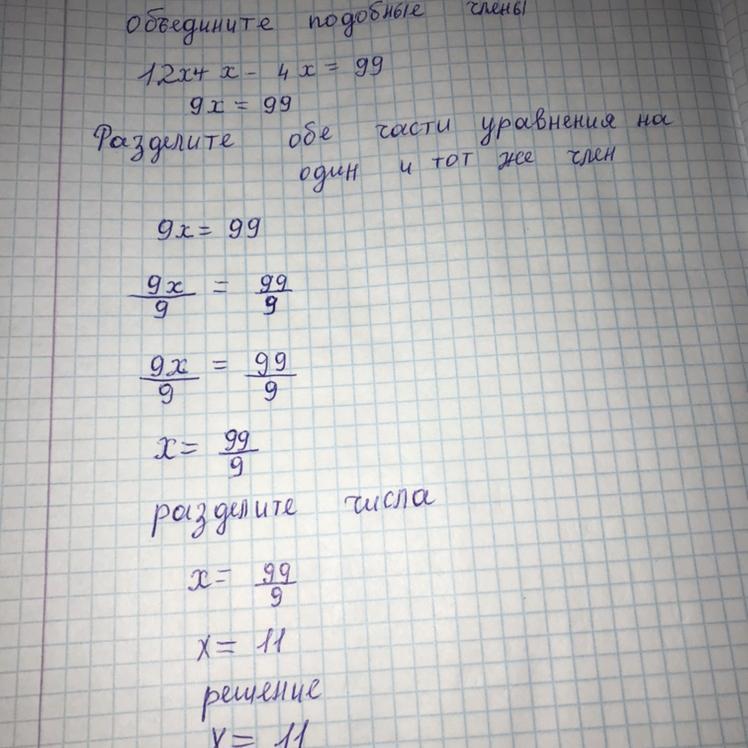 Объедините подобные члены
12x+ x - 4x = 99
9x = 99
Разделите обе части уравнения на
один и тот же член
9x = 99
9x/9 = 99/9
9x/9 = 99/9
x = 99/9
разделите числа
x = 99/9
x = 11
решение
x = 11